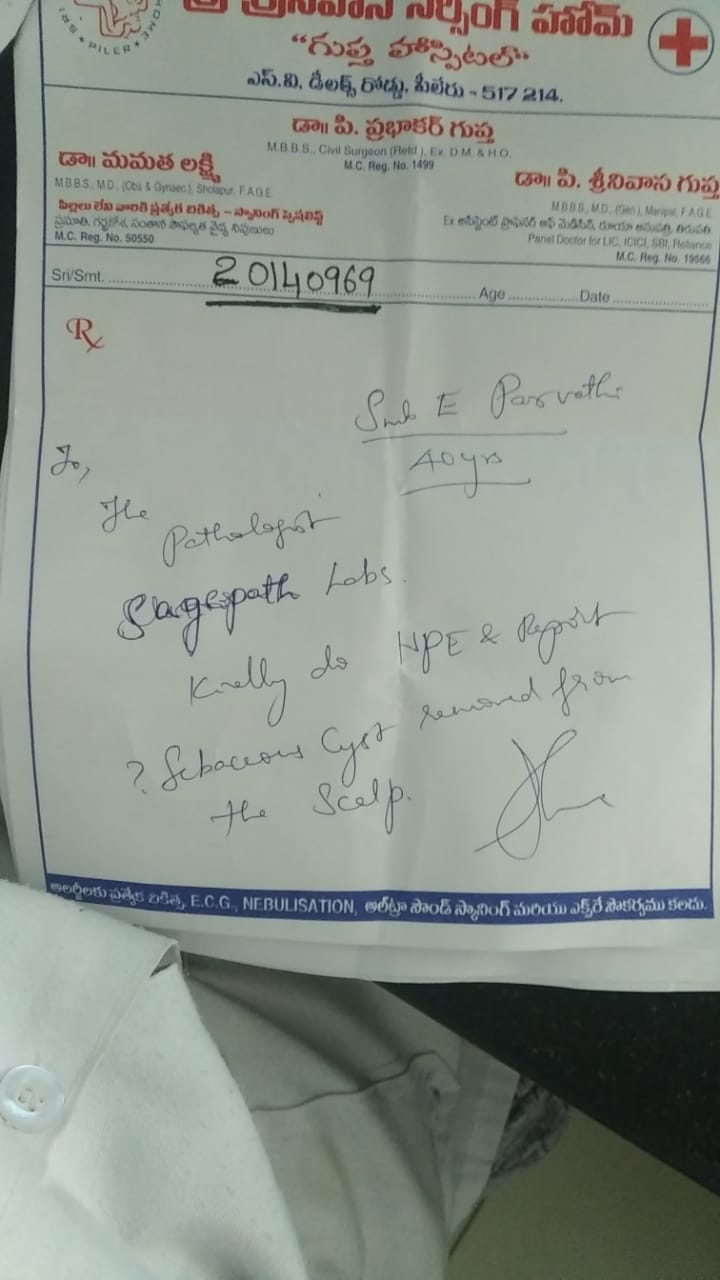 HOME ★ PILER ★ SRI
శ్రీ శ్రీనివాస నర్సింగ్ హోమ్
“గుప్త హాస్పిటల్”
ఎస్.వి. డీలక్స్ రోడ్డు, పీలేరు - 517 214.
డా॥ పి. ప్రభాకర్ గుప్త
M.B.B.S., Civil Surgeon (Retd.), Ex. D.M. & H.O.
M.C. Reg. No. 1499
డా॥ మమత లక్ష్మి
M.B.B.S., M.D., (Obs & Gynaec.), Sholapur, F.A.G.E.
పిల్లలు లేని వారికి ప్రత్యేక చికిత్స – స్కానింగ్ స్పెషలిస్ట్
ప్రసూతి, గర్భకోశ, సంతాన సాఫల్యత వైద్య నిపుణులు
M.C. Reg. No. 50550
డా॥ పి. శ్రీనివాస గుప్త
M.B.B.S., M.D., (Gen.), Manipal, F.A.G.E
Ex. అసిస్టెంట్ ప్రొఫెసర్ ఆఫ్ మెడిసిన్, రుయా ఆసుపత్రి, తిరుపతి.
Panel Doctor for LIC, ICICI, SBI, Reliance
M.C. Reg. No. 19566
Sri/Smt. 20140969 Age Date
Rx
Smt E Parvathi
40yrs
To,
The
Pathologist
Sagepath Labs.
Kindly do HPE & Report
? Sebaceous Cyst removed from
the Scalp.
అలర్జీలకు ప్రత్యేక చికిత్స, E.C.G., NEBULISATION, అల్ట్రా సౌండ్ స్కానింగ్ మరియు ఎక్స్‌రే సౌకర్యము కలదు.